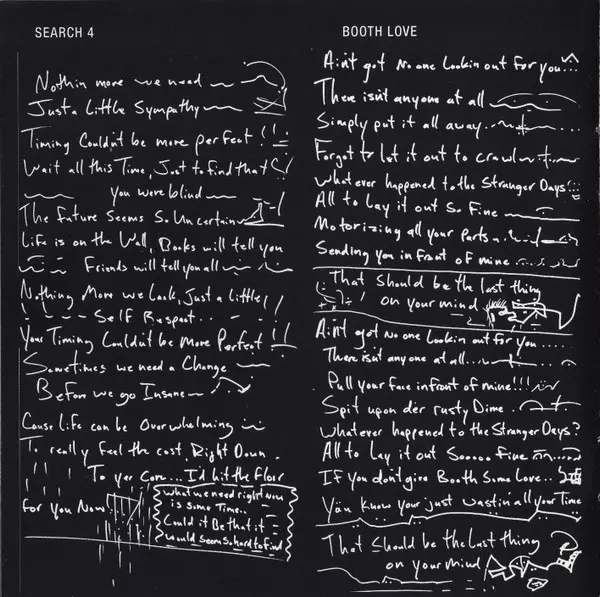 SEARCH 4
Nothin more we need
Just a Little Sympathy
Timing Couldn't be more perfect!!
Wait all this Time, Just to find that
you were blind
The future Seems So Uncertain
Life is on the Wall, Books will tell you
Friends will tell you all
Nothing More we Lack, Just a Little
Self Respect..
Your Timing Couldn't be More Perfect!!
Sometimes we need a Change
Before we go Insane
Cause Life can be Overwhelming
To really feel the cost, Right Down
To yer Core... I'd hit the Floor
For you Now!
What we need right now
is some Time..
Could it Be that it
would seem so hard to find
BOOTH LOVE
Ain't got No one Lookin out For you...
There isn't anyone at all
Simply put it all away..
Forgot to let it out to crawl
Whatever happened to the Stranger Days!
All to Lay it out So Fine
Motorizing all your Parts
Sending you in front of mine
That Should be the last thing
on your mind
Ain't got No one Lookin out For you.....
There isn't anyone at all...
Pull your Face infront of mine!!!
Spit upon der rusty Dime.
Whatever happened to the Stranger Days?
All to Lay it out Sooooo Fine
If You don't give Booth Some Love..
You know your just wastin' all your Time
That Should be the Last thing
on your Mind